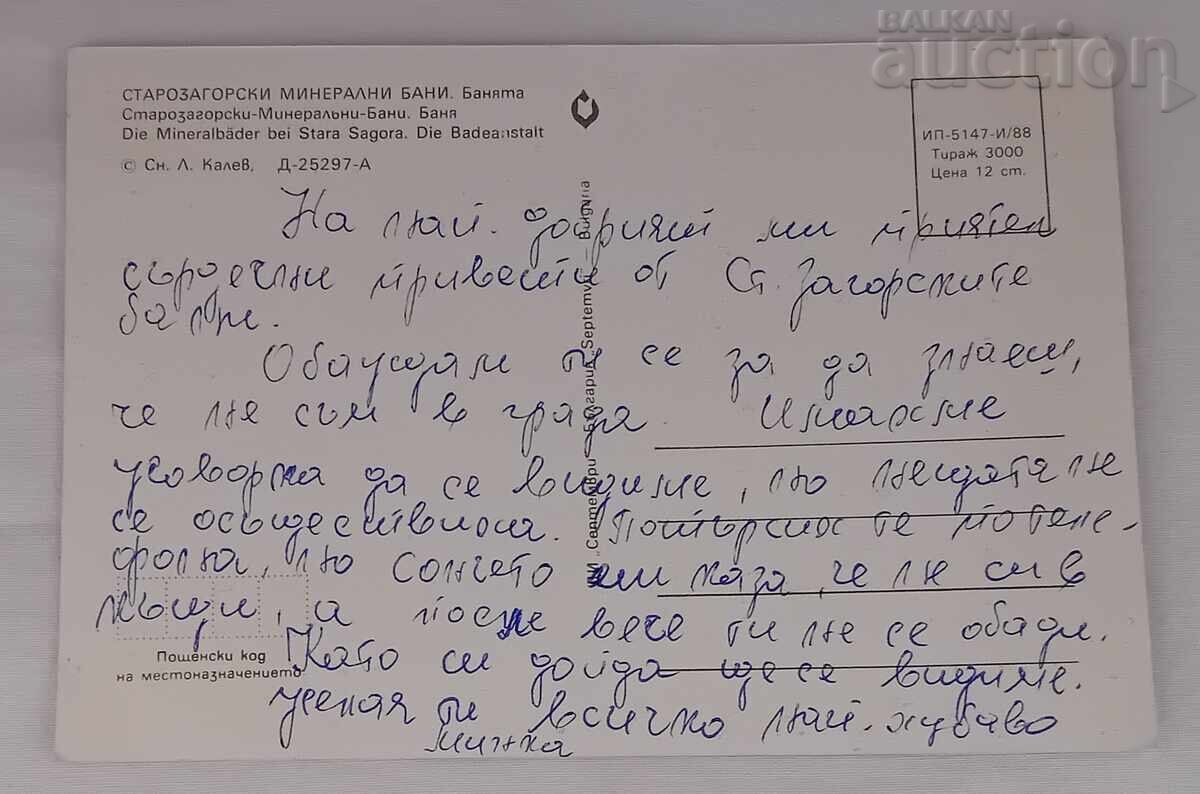 BALKAN
auction
СТАРОЗАГОРСКИ МИНЕРАЛНИ БАНИ. Банята
Старозагорски-Минеральни-Бани. Баня
Die Mineralbäder bei Stara Sagora. Die Badeanstalt
© Сн. Л. Калев, Д-25297-А
ИП-5147-И/88
Тираж 3000
Цена 12 ст.
На най-добрият ми приятел
сърдечни привети от Ст. Загорските
бани.
Обаждам ти се за да знаеш,
че не съм в града. Имахме
уговорка да се видиме, но нещата не
се осъществиха. Потърсих те по теле-
фона, но Сончето ми каза, че не си в
къщи, а после вече ти не се обади.
Като си дойда ще се видиме.
Желая ти всичко най-хубаво
Минка
Пощенски код
на местоназначението
"Септември" България Septemvri – Bulgaria